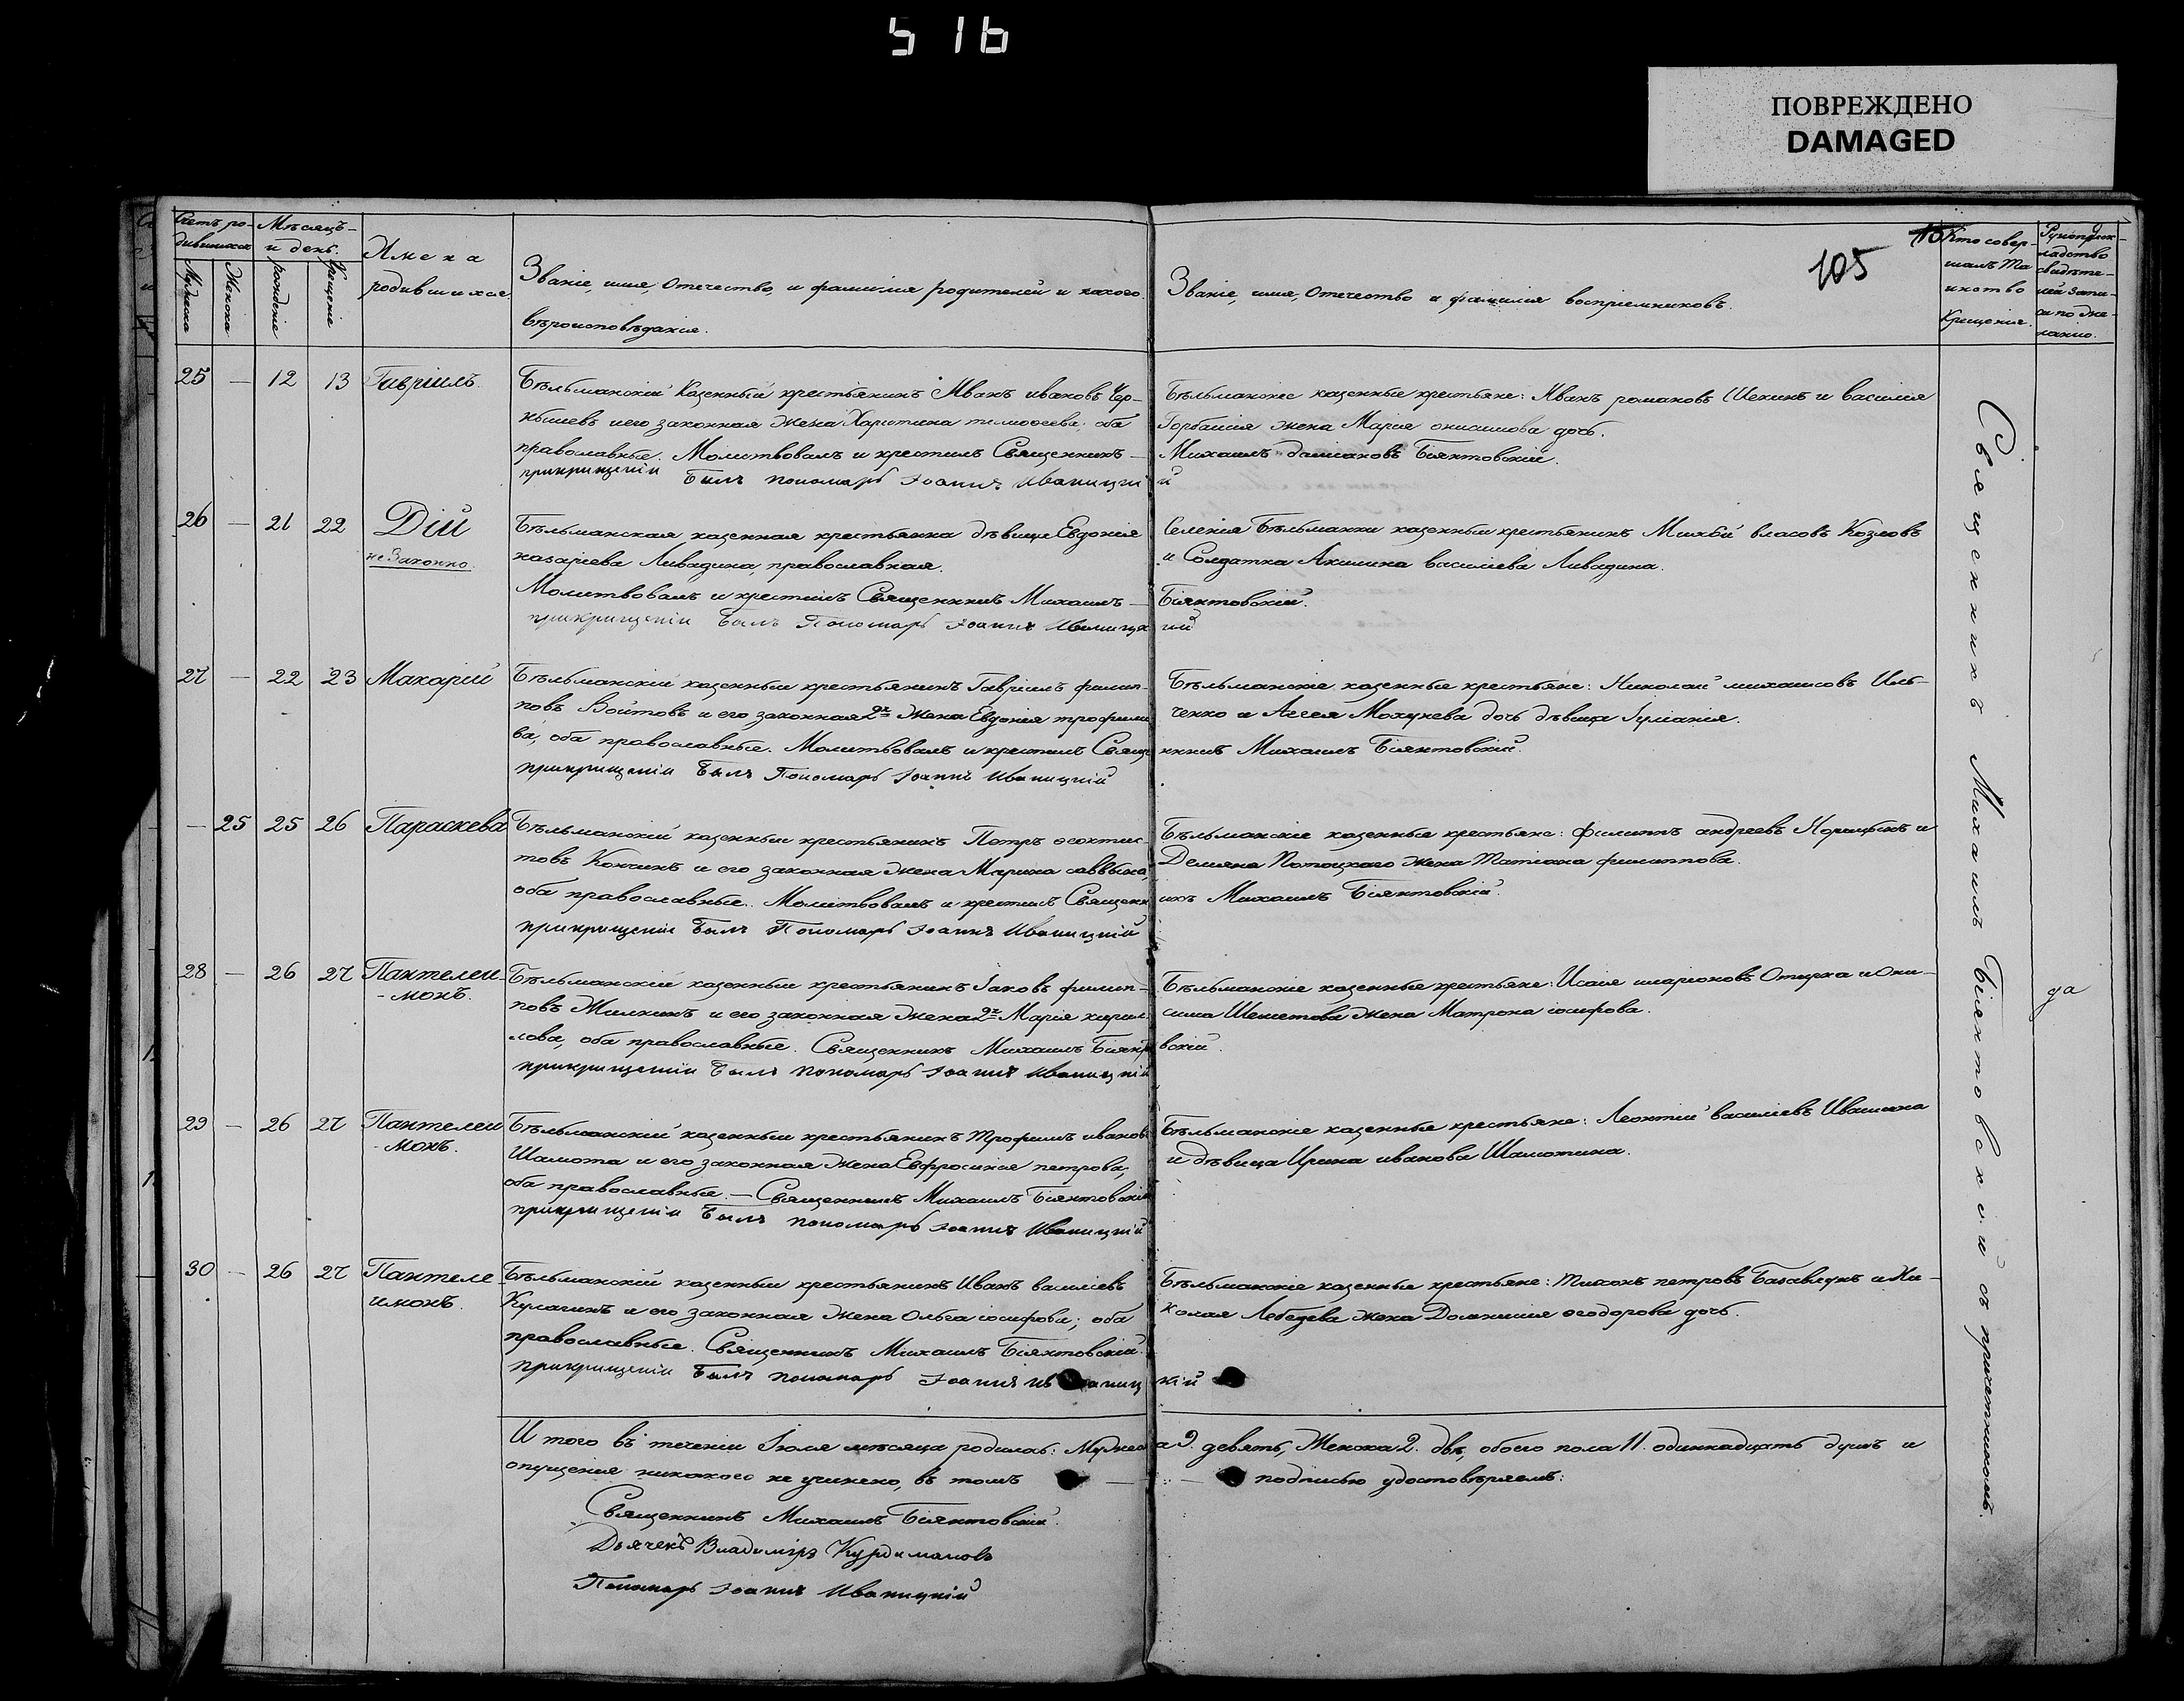 516
ПОВРЕЖДЕНО
DAMAGED
105
Счетъ ро-
дившихся
Мужеска
Женска
Мѣсяцъ
и день.
рожденіе
крещеніе
Имена
родившихся
Званіе, имя, Отечество, и фамилія родителей и какого
вѣроисповѣданія.
Званіе, имя, Отечество и фамилія воспріемниковъ.
Кто совер-
шалъ Та
инство
Крещенія.
свидѣте-
лей запи-
си по же-
ланію.
25 — 12 13 Гавріилъ.
Бѣльманскій Казенный крестьянинъ Иванъ ивановъ Чер-
нышевъ и его законная жена Харитина тимоѳеева; оба
православные. Молитвовалъ и крестилъ Священникъ —
прикрищеніи Былъ пономарь Іоаннъ Иваницкі
Бѣльманскіе казенные крестьяне: Иванъ романовъ Щекинъ и василія
Горбаня жена Марія онисимова дочь.
Михаилъ даміановъ Біянтовскій.
й
26 — 21 22 Дій
не Законно.
Бѣльманская казенная крестьянка дѣвица Евдокія
назаріева Ливадина, православная.
Молитвовалъ и крестилъ Священникъ Михаилъ —
прикрищеніи Былъ Пономарь Іоаннъ Иваницк
Селенія Бѣльманки казенный крестьянинъ Михей власовъ Козловъ
и Солдатка Акилина василіева Ливадина.
Біянтовскій.
ий
27 — 22 23 Макарій
Бѣльманскій казенный крестьянинъ Гавріилъ филип-
повъ Войтовъ и его законная 2я жена Евдокія трофимо
ва, оба православные. Молитвовалъ и крестилъ Свяще
прикрищеніи Былъ Пономарь Іоаннъ Иваницкій
Бѣльманскіе казенные крестьяне: Николай михаиловъ Иль-
ченко и дочь дѣвица Іуліанія.
нникъ Михаилъ Біянтовскій.
— 25 25 26 Параскева
Бѣльманскій казенный крестьянинъ Петръ ѳеоктис-
товъ Кончинъ и его законная жена Марина саввына,
оба православные. Молитвовалъ и крестилъ Священн
прикрищеніи Былъ Пономарь Іоаннъ Иваницкій
Бѣльманскіе казенные крестьяне: филиппъ андреевъ и
Деміяна Потоцкаго жена Татіана филиппова.
икъ Михаилъ Біянтовскій.
28 — 26 27 Пантелеи-
-монъ.
Бѣльманскій казенный крестьянинъ Іаковъ филип-
повъ Жилкинъ и его законная жена 2я Марія кирил
лова, оба православные. Священникъ Михаилъ Біянто
прикрищеніи Былъ пономарь Іоаннъ Иваницкій
Бѣльманскіе казенные крестьяне: Исаія иларіоновъ и Они-
сима Шеметова жена Матрона іосифова.
вскій.
29 — 26 27 Пантелеи
-монъ.
Бѣльманскій казенный крестьянинъ трофимъ иванов
Шамота и его законная жена Евфросинія петрова,
оба православные. — Священникъ Михаилъ Біянтовскій
прикрищеніи Былъ пономарь Іоаннъ Иваницкій
Бѣльманскіе казенные крестьяне: Леонтій василіевъ Ивашина
и дѣвица Ирина иванова Шамотина.
30 — 26 27 Пантеле
имонъ.
Бѣльманскій казенный крестьянинъ Иванъ василіевъ
Кулагинъ и его законная жена Ольга іосифова; оба
православные. Священникъ Михаилъ Біянтовскій.
прикрищеніи Былъ пономарь Іоаннъ Иваниц
Бѣльманскіе казенные крестьяне: тихонъ петровъ Базавлукъ и Ни-
колая Лебедева жена Домникія ѳеодорова дочь.
кій
Священникъ Михаилъ Біянтовскій съ причетникомъ.
да
Итого въ теченіи Іюля мѣсяца родилось: Мужеск
а 9. девять, Женска 2. двѣ, обоего пола 11. одиннадцать душъ и
опущенія никакого не учинено, въ томъ —
— подписью удостовѣряемъ:
Священникъ Михаилъ Біянтовскій.
Дьячекъ Владиміръ Курдимановъ
Пономарь Іоаннъ Иваницкій